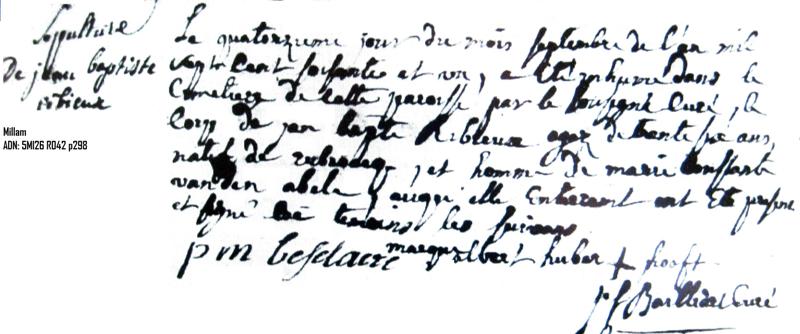 Sepulture
De jean baptiste
ribieux
Millam
ADN: 5MI26 R042 p298
Le quatorzieme jour du mois septembre de l'an mil
sept cent soisante et un, a été inhumé dans le
Cimetiere de cette paroisse par le sousigné Curé, le
Corp de jan bapte Ribieux agez de trente ans,
natif de rubrocq, et homme de marie Constante
vanden abele, auquel enterement ont été presens
et signé temoins les suivans
p m besdaere marque albert huber + hooft
Curé